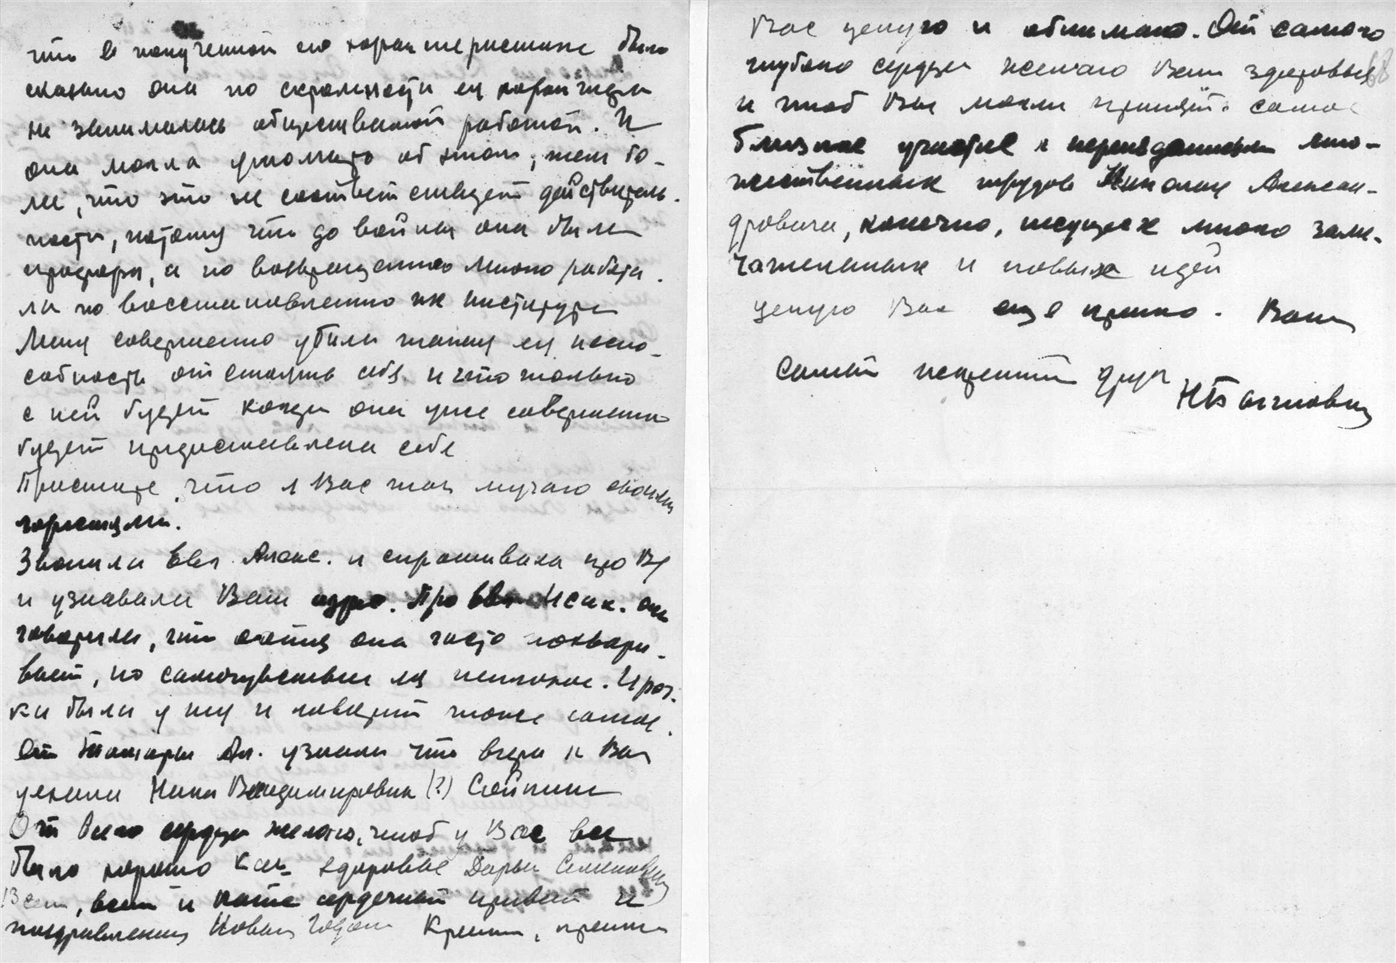 что в полученной по характеристике было
сказано она по скромности ея характера
не занималась общественной работой. И
она могла упомнить об этом, тем бо-
лее, что это не соответствует действитель-
ности, потому что до войны она была
профорг, а по возвращению много работа-
ла по восстановлению их института
Меня совершенно убила такая ея неспо-
собность отстоять себя и что только
с ней будет когда она уже совершенно
будет предоставлена себе
Простите, что я Вас так мучаю своими
горестями.
Звонила Ева Алекс. и спрашивала про В
и узнавала Ваш адрес. Про Исак. они
говорили, что она часто похвары-
вает, но самочувствие ея неплохое.
были у и говорят тоже самое.
от Тамары Ал. узнали что вчера к Вам
уехали Нина Владимировна (?) Скейпинг
От всего сердца желаю, чтоб у Вас все
было хорошо Как здоровье Дарьи Семеновны
Всем, всем и сердечный привет и
поздравления Новым Годом Крепко, крепко
Вас целую и обнимаю. От самого
глубока сердца желаю Вам здоровья 68
и чтоб Вы могли принять самое
близкое участие в переиздании мно-
жественных трудов Николая Алексан-
дровича, конечно, ищущих много заме-
чательных и новых идей
целую Вас еще крепко. Ваш
самый искренний друг